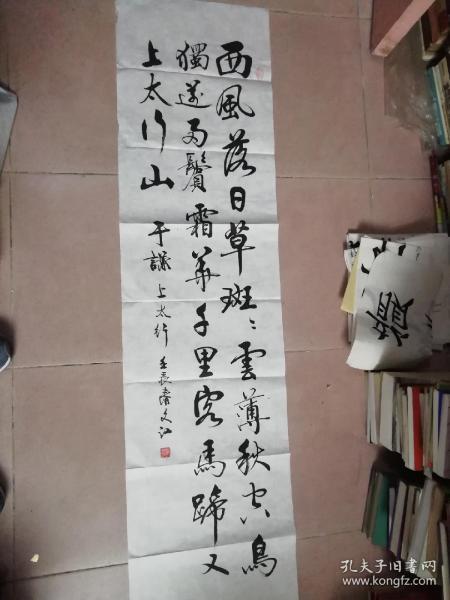 西風落日草斑〻雲薄秋空鳥
獨還兩鬢霜華千里客馬蹄又
上太行山 于謙 上太行 壬辰 文江
孔夫子旧书网
www.kongfz.com